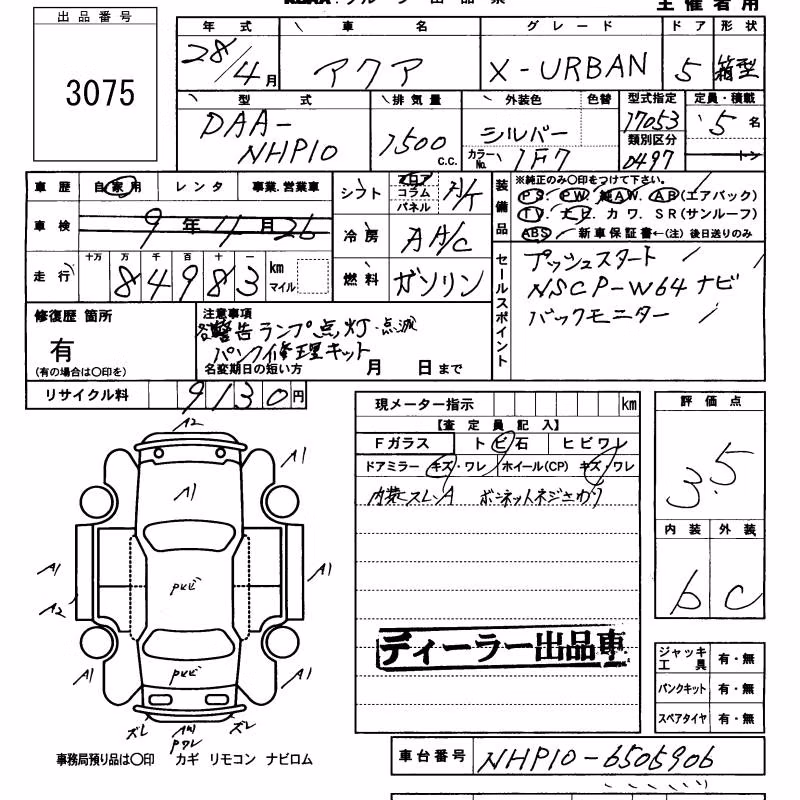 主催者用
出品番号
3075
年式 車名 グレード ドア 形状
28/4月 アクア X-URBAN 5 箱型
型式 排気量 外装色 色替 型式指定 定員・積載
DAA-NHP10 1500 c.c. シルバー 17053 5名
カラーNo. 1F7 類別区分 0497 トン
車歴 自家用 レンタ 事業.営業車
シフト フロア コラム パネル A/T
車検 9年4月26
冷房 AA/C
走行 十万 万 千 百 十 一 84983 km マイル
燃料 ガソリン
装備品 ※純正のみ〇印をつけて下さい。
PS. PW. 純AW. AB(エアバック)
TV. ナビ. カワ. SR(サンルーフ)
ABS 新車保証書←(注)後日送りのみ
セールスポイント
プッシュスタート
NSCP-W64 ナビ
バックモニター
修復歴 箇所
有
(有の場合は〇印を)
注意事項
警告ランプ点灯・点滅
パンク修理キット
名変期日の短い方 月 日まで
リサイクル料 9130円
現メーター指示 km
【査定員記入】
Fガラス トビ石 ヒビワレ
ドアミラー キズ・ワレ ホイール(CP) キズ・ワレ
内装スレ.A ボンネットネジさわり
評価点
3.5
内装 外装
b C
A2
A1
A1
A1
A1
A2
Pヒビ
A1
Pヒビ
A1
ズレ
Pワレ
ズレ
ディーラー出品車
ジャッキ工具 有・無
パンクキット 有・無
スペアタイヤ 有・無
事務局預り品は〇印 カギ リモコン ナビロム
車台番号 NHP10-6505906